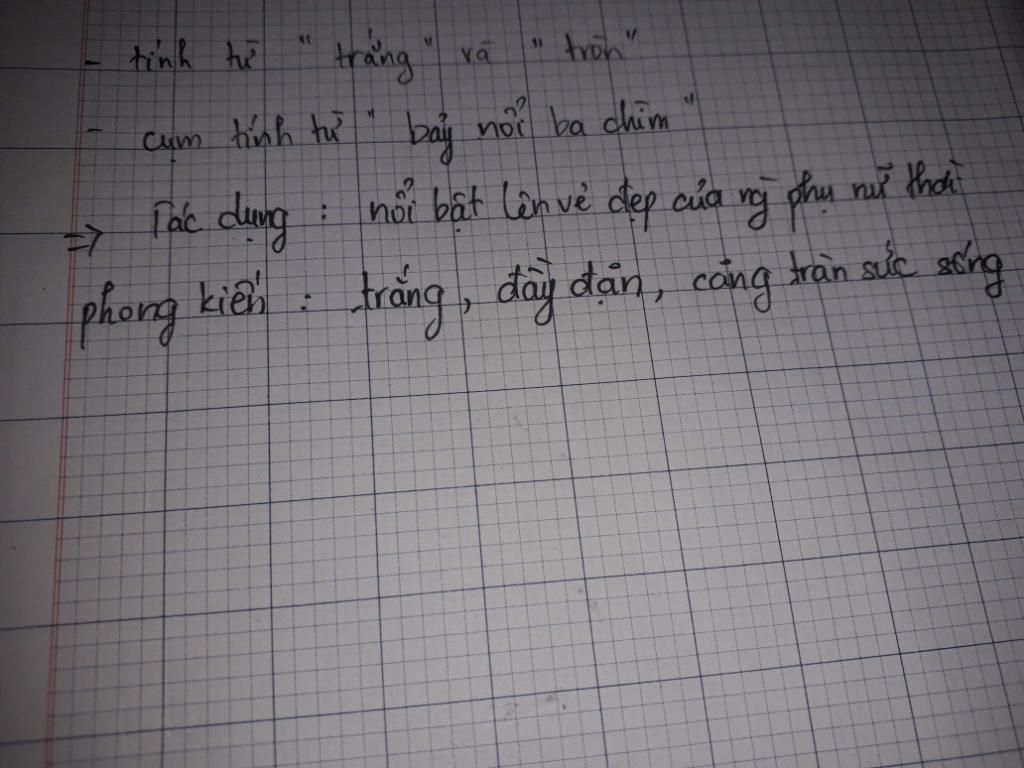 - tính từ " trắng " và " tròn "
- cụm tính từ " bảy nổi ba chìm "
=> Tác dụng : nổi bật lên vẻ đẹp của ng phụ nữ thời
phong kiến : trắng, đầy đặn, căng tràn sức sống